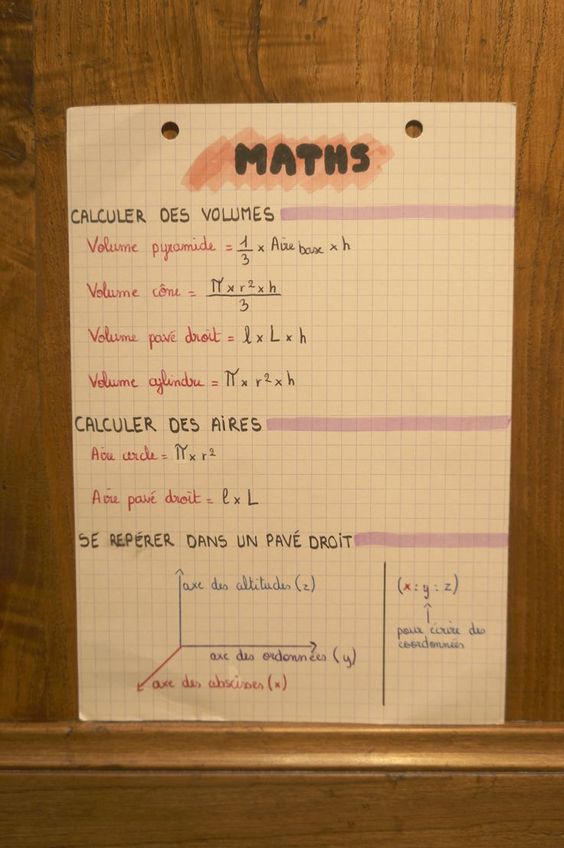 MATHS
CALCULER DES VOLUMES
Volume pyramide = 1/3 x Aire base x h
Volume cône = π x r² x h / 3
Volume pavé droit = l x L x h
Volume cylindre = π x r² x h
CALCULER DES AIRES
Aire cercle = π x r²
Aire pavé droit = l x L
SE REPÉRER DANS UN PAVÉ DROIT
axe des altitudes (z)
axe des ordonnées (y)
axe des abscisses (x)
(x : y : z)
pour écrire des
coordonnées